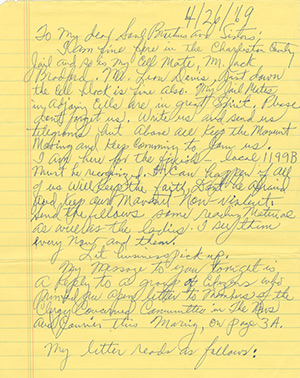 4/26/69
To My dear Sons, Brothers and Sisters:
I am fine here in the Charleston County
Jail and so is my Cell Mate, Mr. Jack
Bradford. Mr. Leon Davis, just down
the Cell block is fine also. My Jail Mates
in adjoing Cells are in great Spirit. Please
dont forget us. Write us and send us
telegrams but above all keep the Movement
Moving and keep comming to Jom us.
I am here for the finish - Local 1199B
Must be recognized. It Can happen if all
of us Will keep the faith, Dont be afraid
and keep our Movement Non-Violent.
Send the fellows some reading Material
as well as the ladies. I see them
every Now and then.
Let business pick up.
My Message to you tonight is
a reply to a group of Citizens who
an open letter to Members of the
Clergy Concerned Committee in The News
and Courier, this Morning, on page 3A.
My letter reads as follows: